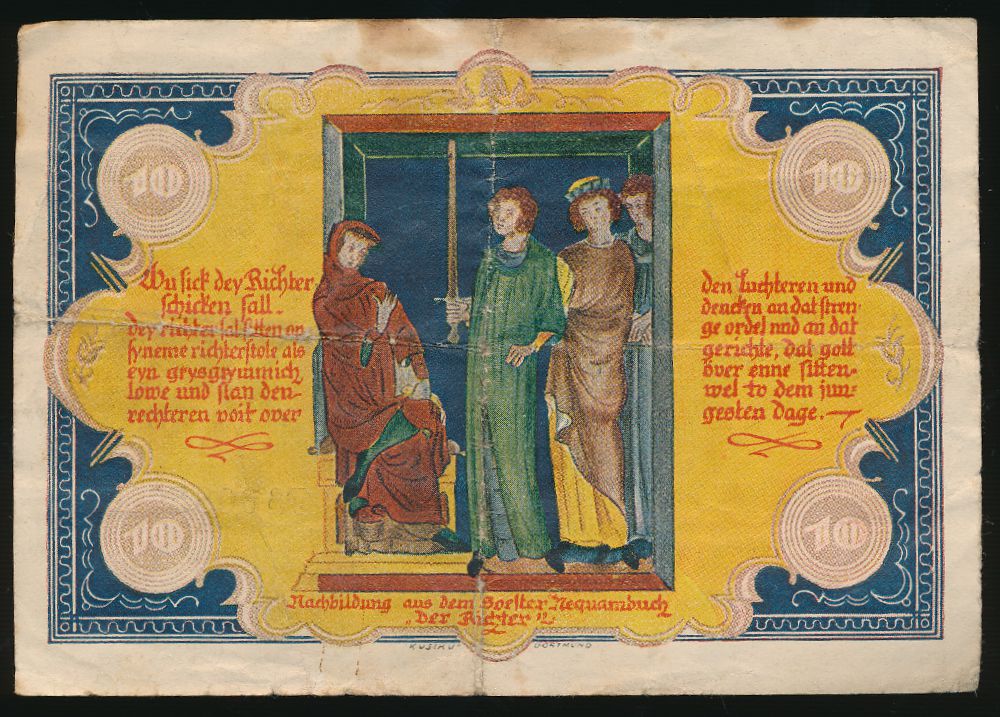 10
10
Wu sick dey Richter
schicken sall.
Dey richter sal sitten op
syneme richterstole als
eyn grysgrymmich
lowe und slan den
rechteren voit over
den luchteren und
dencken an dat stren-
ge ordel und an dat
gerichte, dat gott
över enne sitten-
wel to dem jun-
gesten dage.
10
10
Nachbildung aus dem Soester Nequambuch
"Der Richter"
KUSIKU DORTMUND